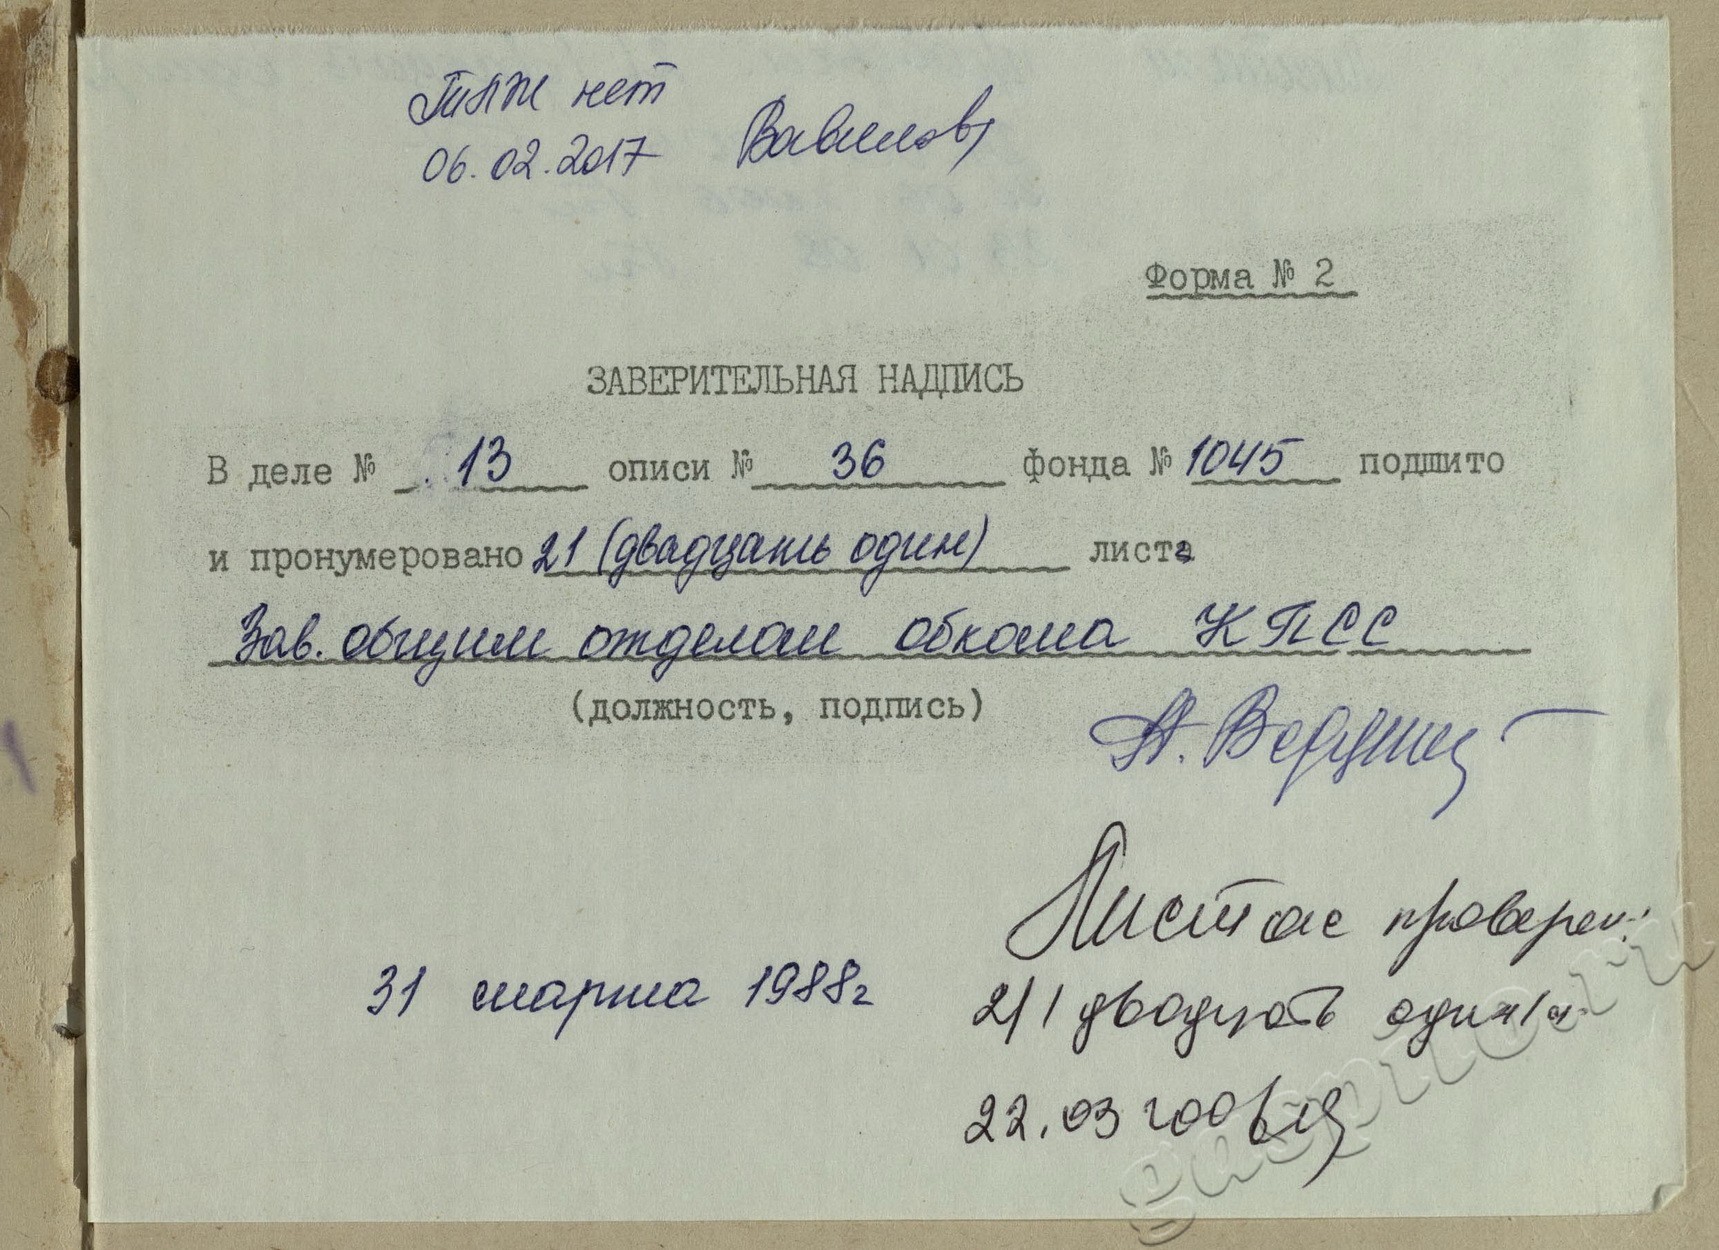 нет
06.02.2017 Вавилов
Форма № 2
ЗАВЕРИТЕЛЬНАЯ НАДПИСЬ
В деле № 13 описи № 36 фонда № 1045 подшито
и пронумеровано 21 (двадцать один) листа
Зав. общим отделом обкома КПСС
(должность, подпись)
Листаж проверен:
31 марта 1988г
21 (двадцать один) л.
22.03
gaspito.ru